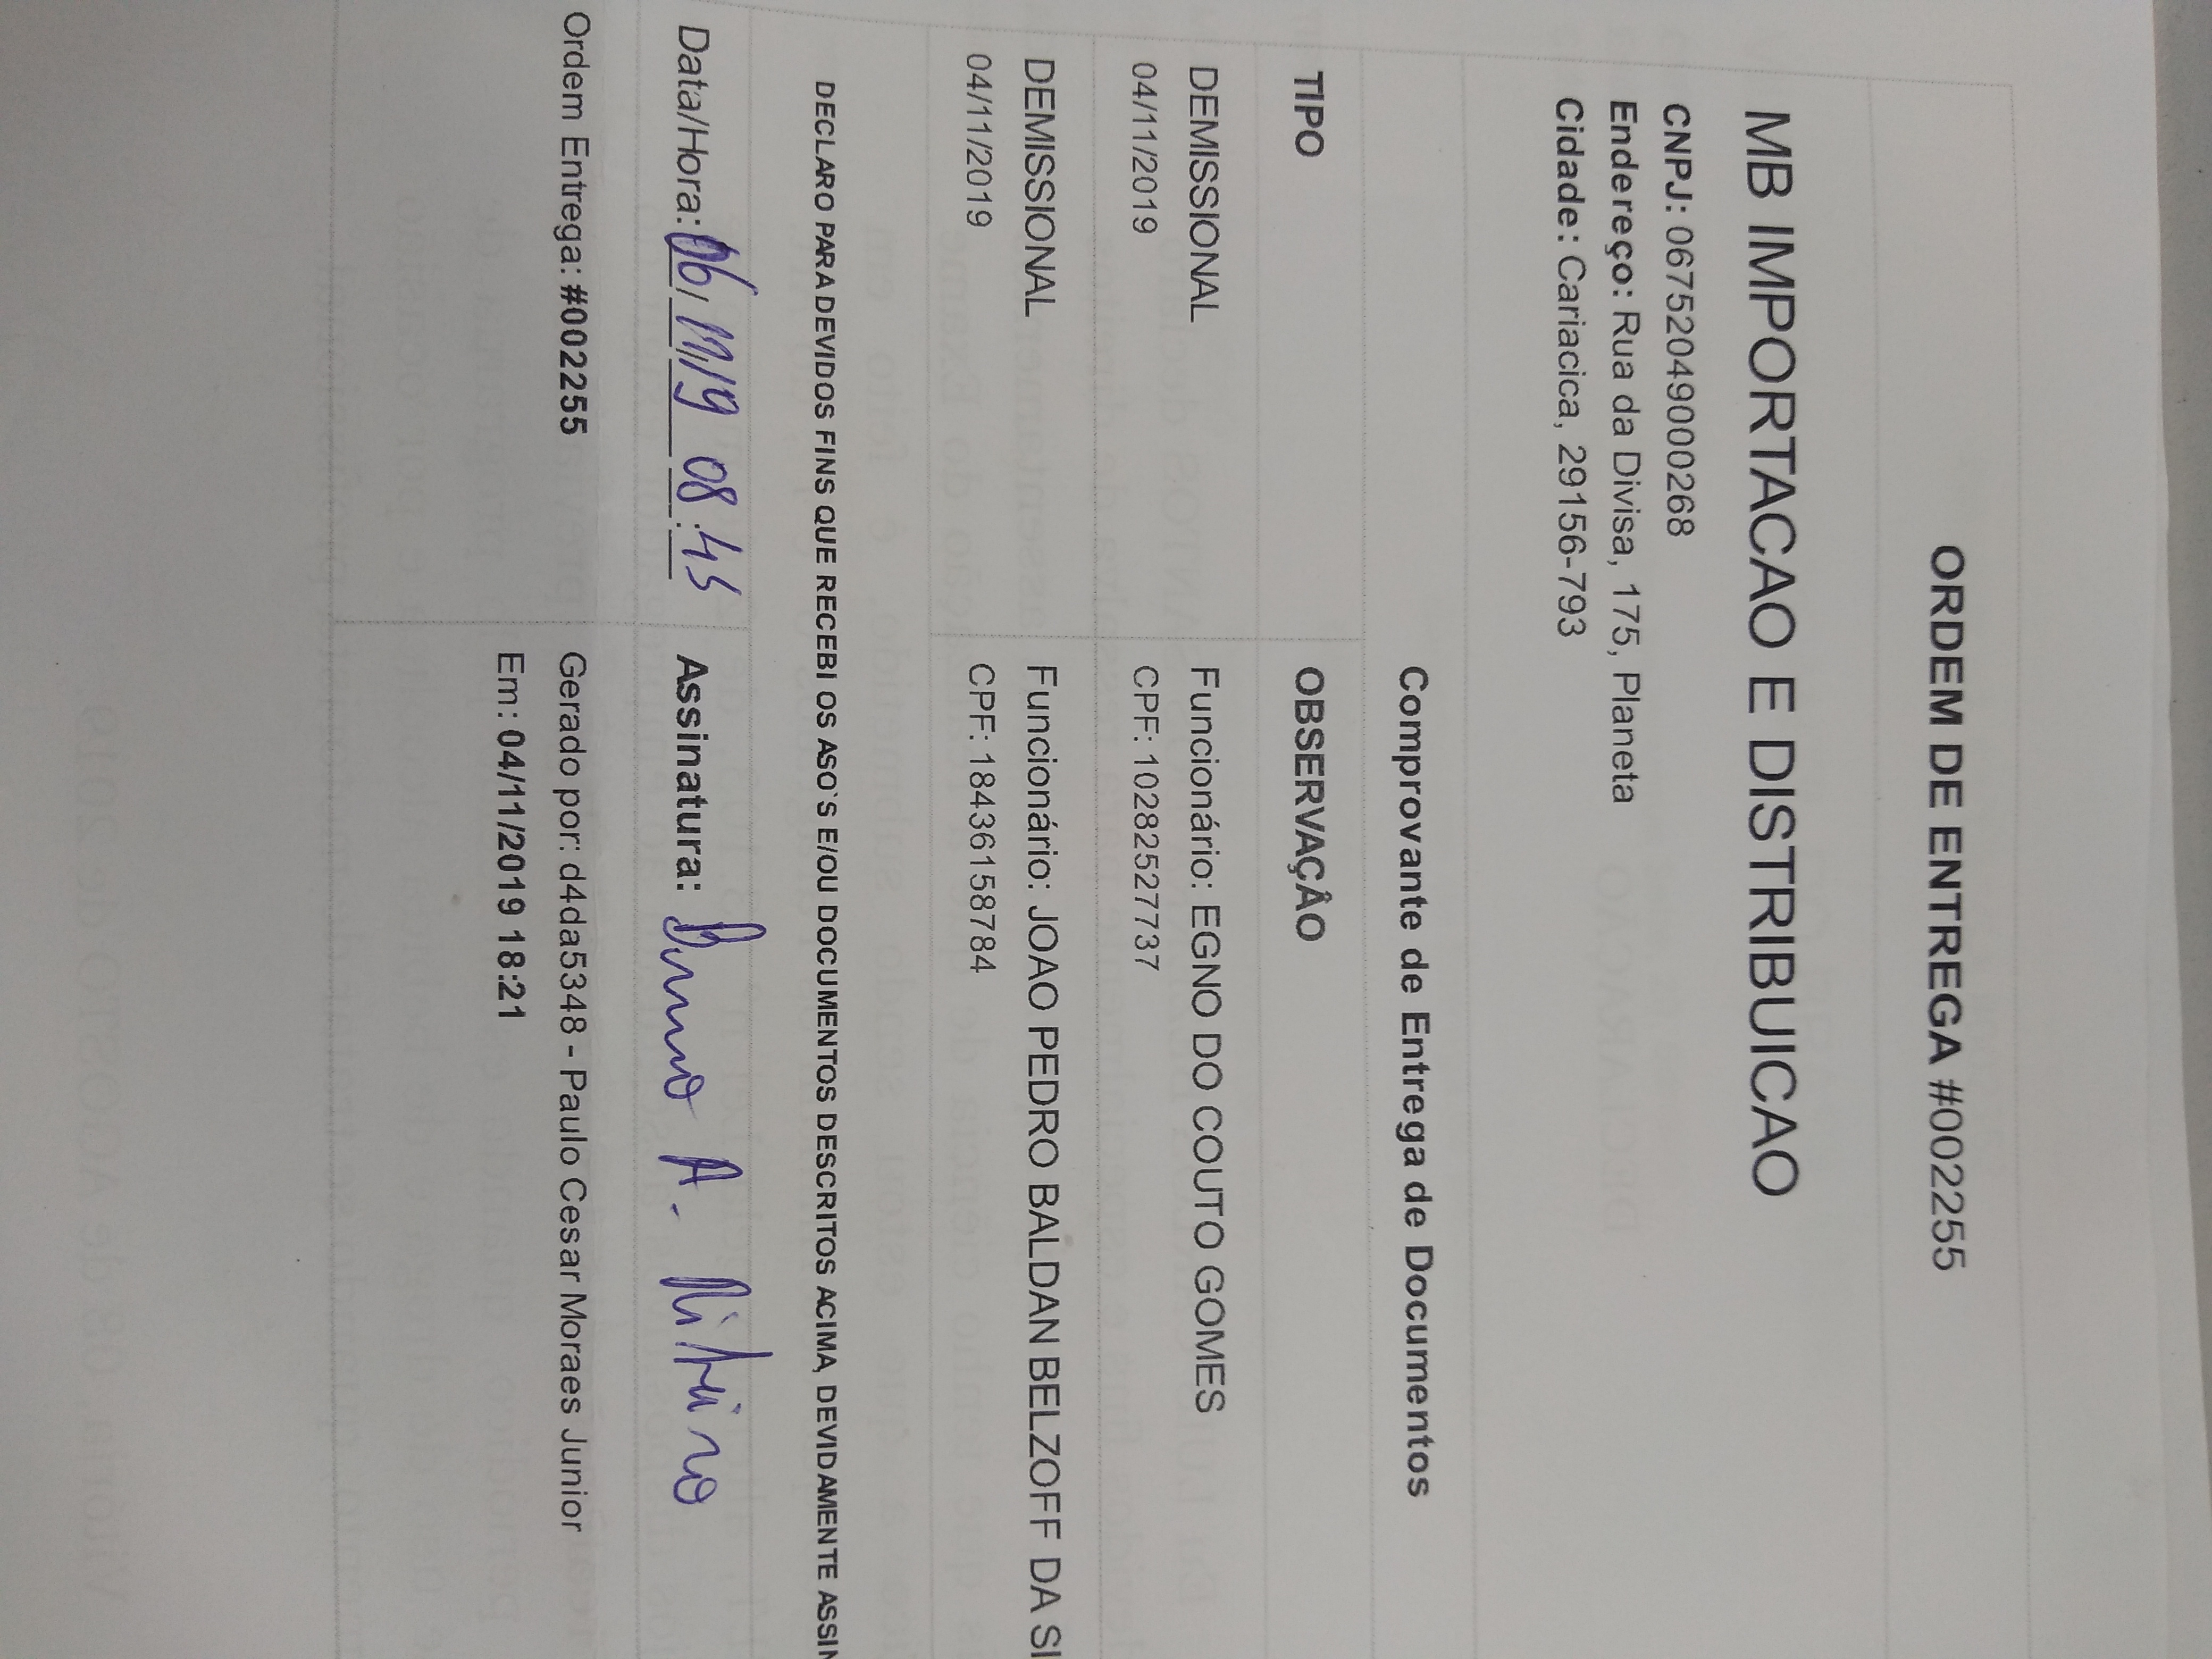 ORDEM DE ENTREGA #002255
MB IMPORTACAO E DISTRIBUICAO
CNPJ: 06752049000268
Endereço: Rua da Divisa, 175, Planeta
Cidade: Cariacica, 29156-793
Comprovante de Entrega de Documentos
TIPO OBSERVAÇÂO
DEMISSIONAL Funcionário: EGNO DO COUTO GOMES
04/11/2019 CPF: 10282527737
DEMISSIONAL Funcionário: JOAO PEDRO BALDAN BELZOFF DA SI
04/11/2019 CPF: 18436158784
DECLARO PARA DEVIDOS FINS QUE RECEBI OS ASO`S E/OU DOCUMENTOS DESCRITOS ACIMA, DEVIDAMENTE ASSIN
Data/Hora: 06/11/19 08:45 Assinatura: Bruno A.
Ordem Entrega: #002255 Gerado por: d4da5348 - Paulo Cesar Moraes Junior
Em: 04/11/2019 18:21